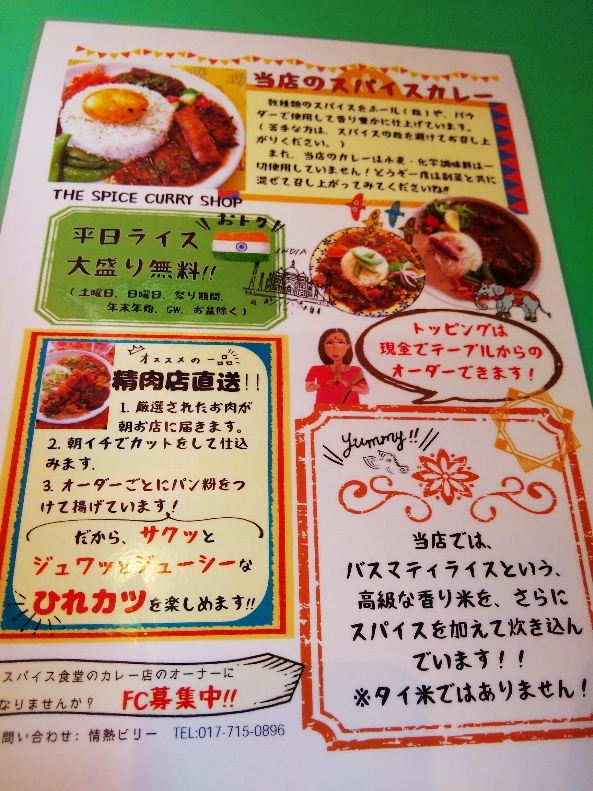 当店のスパイスカレー
数種類のスパイスをホール(粒)や、パウ
ダーで使用して香り豊かに仕上げています。
(苦手な方は、スパイスの粒を避けてお召し上
がりください。)
また、当店のカレーは小麦・化学調味料は一
切使用していません!どうぞ一度は副菜と共に
混ぜて召し上がってみてくださいね!!
THE SPICE CURRY SHOP
おトク
平日ライス
大盛り無料!!
(土曜日、日曜日、祭り期間、
年末年始、GW、お盆除く)
INDIA
トッピングは
現金でテーブルからの
オーダーできます!
オススメの一品
精肉店直送!!
1. 厳選されたお肉が
朝お店に届きます。
2. 朝イチでカットをして仕込
みます.
3. オーダーごとにパン粉をつ
けて揚げています!
だから、サクッと
ジュワッとジューシーな
ひれカツを楽しめます!!
yummy!!
当店では、
バスマティライスという、
高級な香り米を、さらに
スパイスを加えて炊き込ん
でいます!!
※タイ米ではありません!
スパイス食堂のカレー店のオーナーに
なりませんか? FC募集中!!
問い合わせ: 情熱ビリー TEL:017-715-0896